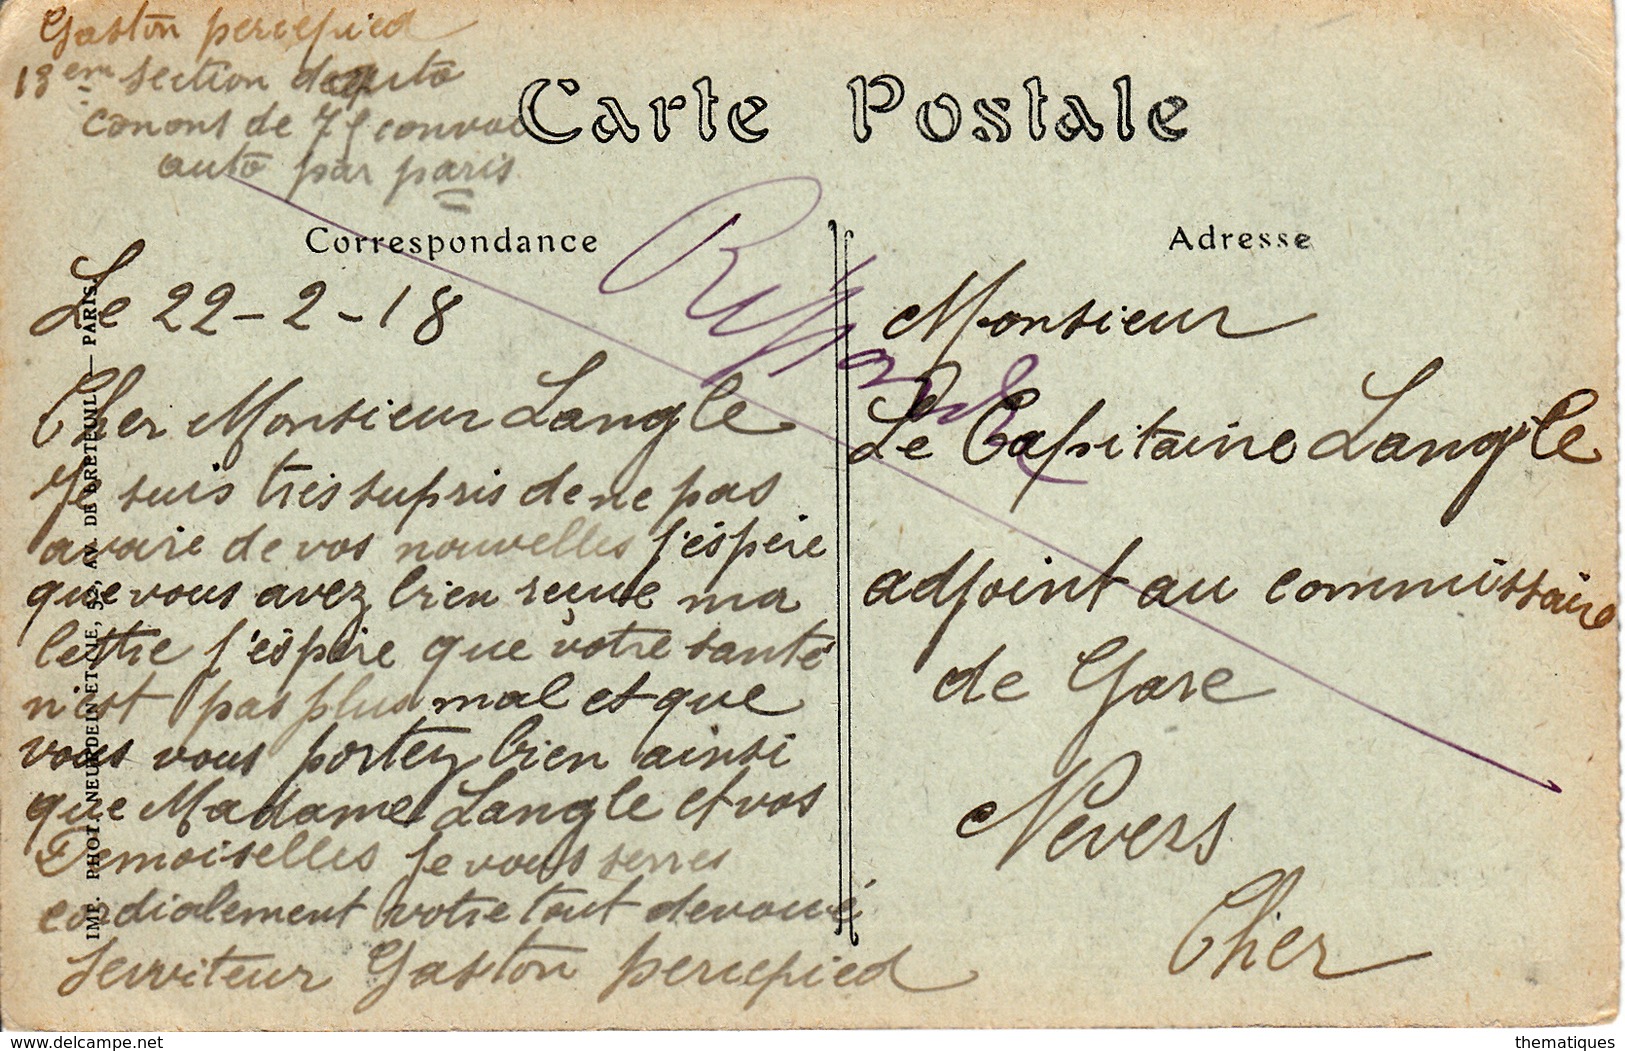 Gaston percepied
13eme section dauto
canons de 75 convoi
auto par paris
Carte Postale
Correspondance
Le 22-2-18
Cher Monsieur Langle
Je suis tres supris de ne pas
avoire de vos nouvelles j'éspére
que vous avez bien reçue ma
lettre j'éspére que votre santé
n'est pas plus mal et que
vous vous portez bien ainsi
que Madame Langle et vos
Demoiselles je vous serres
cordialement votre tout devoué
Serviteur Gaston percepied
Adresse
Monsieur
Le Capitaine Langle
adjoint au commissaire
de Gare
Nevers
Cher
IMP. PHOT. NEURDEIN ET CIE, 52, AV. DE BRETEUIL — PARIS.
delcampe.net
thematiques